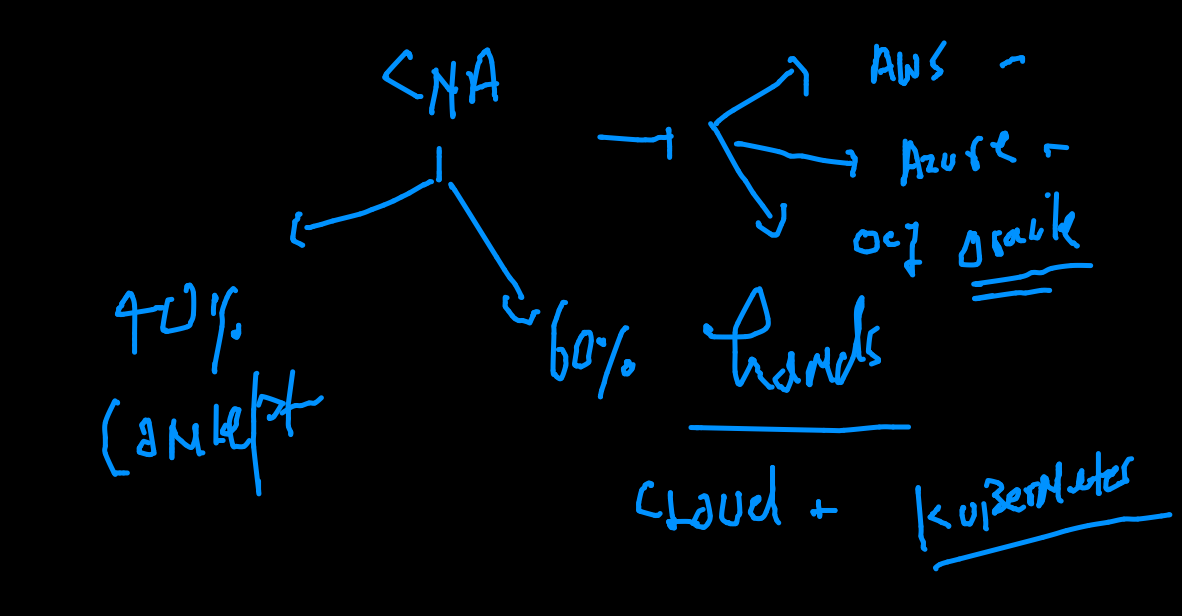 CNA
AWS -
Azure -
OCI Oracle
40%
Concept
60%
hands
Cloud + Kubernetes